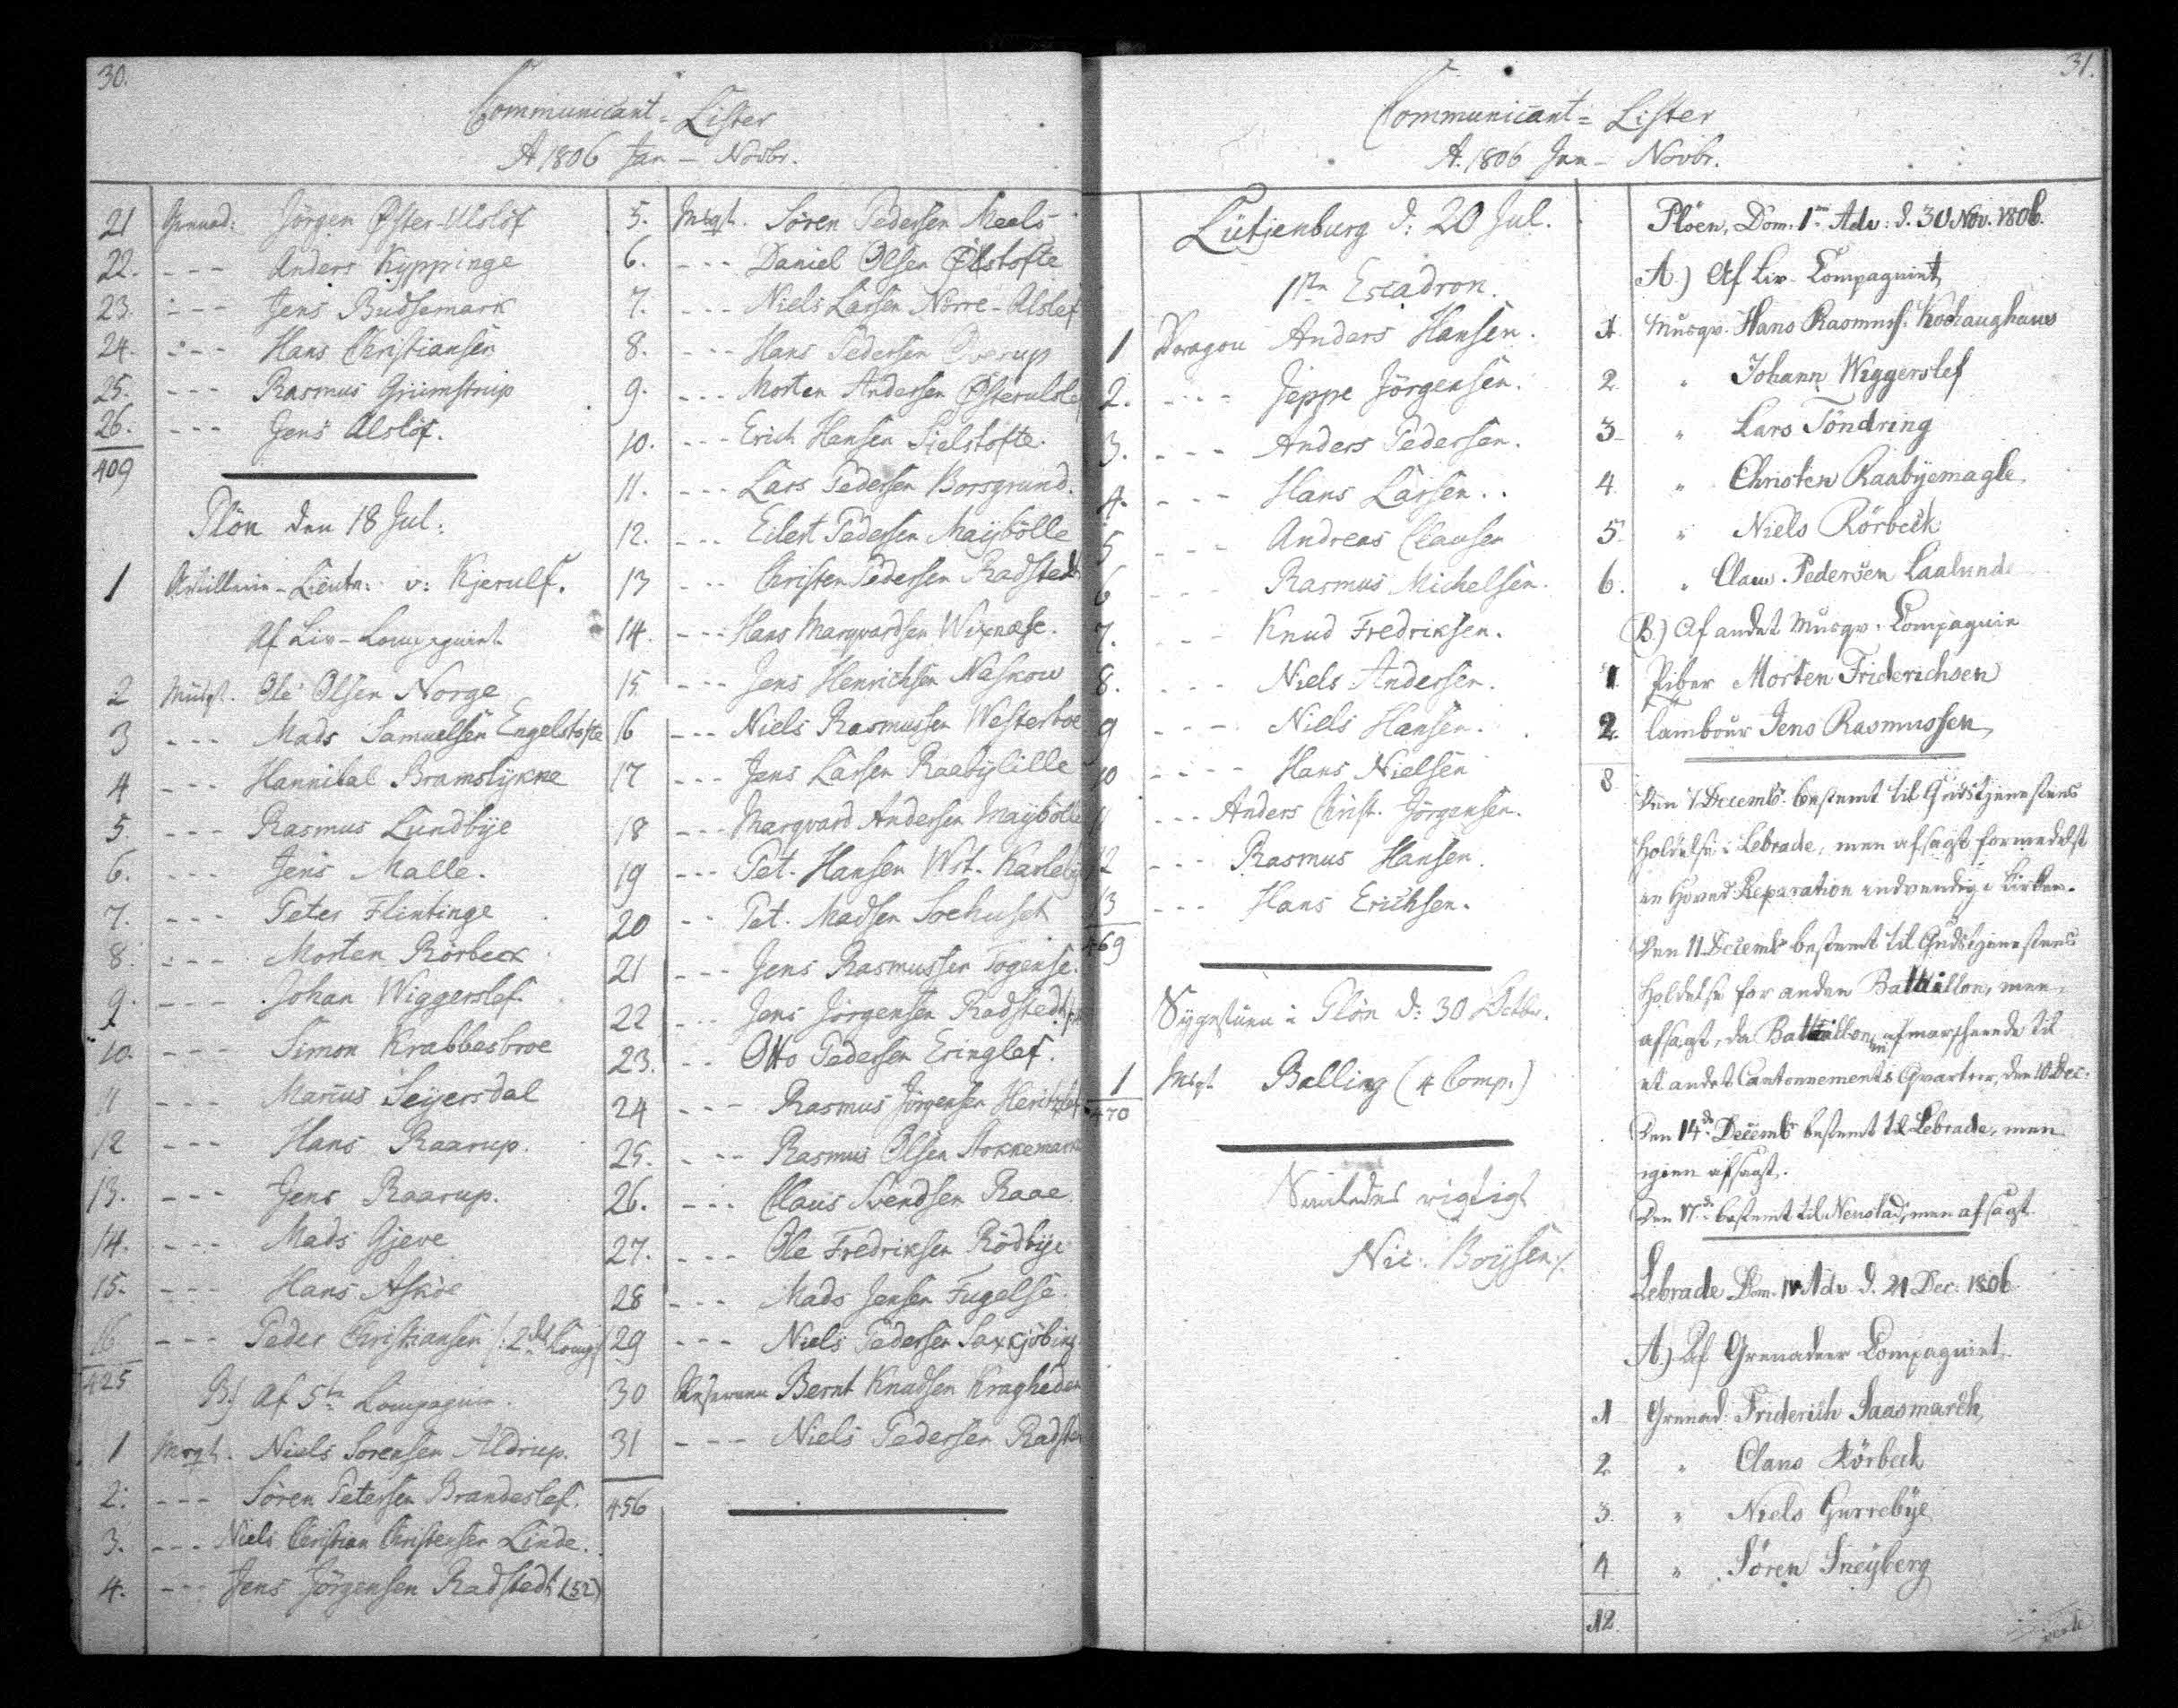 30.
Communicant = Lister
A 1806 Jan - Novbr.
21 Grenad: Jörgen Øster-Ulslöf
22. --- Anders Kyppringe
23. --- Jens Budsemark
24. --- Hans Christiansen
25. --- Rasmus Grümstrup
26. --- Jens Alslöf.
409
Plön den 18 Jul:
1 Artillerie-Lieutn: v: Kjerulf.
Af Liv-Compagniet
2 Musqt. Ole Olsen Norge
3 --- Mads Samuelsen Engelstofte
4 --- Hannibal Bramslykke
5. --- Rasmus Lundbye
6. --- Jens Malle.
7. --- Peter Flintinge
8. --- Morten Rörbeck
9. --- Johan Wiggerslef.
10. --- Simon Krabbesbroe
11 --- Marcus Seyersdal
12 --- Hans Raarup.
13. --- Jens Raarup.
14. --- Mads Gjeve
15. --- Hans Askoe
16 --- Peder Christiansen /: 2det Comp
425
B.) Af 5te Compagnie.
1 Msqt. Niels Sorensen Aldrup.
2. --- Sören Petersen Brandeslef.
3. --- Niels Christian Christensen Linde.
4. --- Jens Jörgensen Radstedt (52)
5. Msqt. Sören Pedersen Meels
6. --- Daniel Olsen
7. --- Niels Larsen Nörre-Alslef
8. --- Hans Pedersen Överup
9. --- Morten Andersen Østerulslef
10. --- Erich Hansen Sielstofte.
11. --- Lars Pedersen Borsgrund.
12. --- Eilert Pedersen Maybölle
13 --- Christen Pedersen Radstedt
14. --- Hans Marqvardsen Wixnæse.
15. --- Jens Henrichsen Naskow
16 --- Niels Rasmussen Westerboe
17 --- Jens Larsen Raabylille
18 --- Marqvard Andersen Maybölle
19 --- Pet. Hansen Wst. Karleby
20 --- Pet. Madsen Soehuset
21 --- Jens Rasmussen Togense.
22 --- Jens Jörgensen Radstedt
23. --- Otto Pedersen Eringlef.
24 --- Rasmus Jörgensen
25. --- Rasmus Olsen Stokkemark
26. --- Claus Svendsen Raae.
27. --- Ole Fredriksen Rödbye
28 --- Mads Jensen Fugelse.
29 --- Niels Pedersen Saxkjöbing
30 Bernt Knudsen Kragheden
31 --- Niels Pedersen Radsted
456
31.
Communicant = Lister
A. 1806 Jan - Novbr.
Lütjenburg d: 20 Jul.
1ste Escadron.
1 Dragon Anders Hansen.
2. --- Jeppe Jörgensen.
3. --- Anders Pedersen.
4. --- Hans Larsen..
5 --- Andreas Clausen
6 --- Rasmus Michelsen.
7. --- Knud Fredriksen.
8. --- Niels Andersen.
9 --- Niels Hansen.
10 --- Hans Nielsen
11 --- Anders Christ. Jörgensen.
12 --- Rasmus Hansen.
13 --- Hans Erichsen.
469
Sygestuen i Plön d: 30 Octbr.
1 Msqt Balling (4 Comp.)
470
Saaledes rigtigt
Nic: Boysen
Plöen, Dom: 1ma Adv: d. 30 Nov. 1806.
A.) Af Liv-Compagniet,
1 Musqv. Hans Rasmuss.
2 " Johann Wiggerslef
3 " Lars Töndring
4 " Christen Raabyemagle,
5 " Niels Rörbeck
6. " Claus Pedersen Laalund
B.) Af andet Musqv: Compagnie
1. Piber Morten Friderichsen
2. Tambour Jens Rasmussen,
8
Den 7 Decembr. bestemt til Gudstjenestens
Holdelse i Lebrade, men afsagt formedelst
en Hoved-Reparation indvendig i Kirken.
Den 11 Decembr bestemt til Gudstjenestens
Holdelse for anden Batallion, men
afsagt, da Batallionen afmarscherede til
et andet Cantonnements Qvarteer, den 10 Dec:
Den 14de Decembr bestemt til Lebrade, men
igien afsagt.
Den 17de bestemt til Neustad, men afsagt
Lebrade Dom. IV Adv. d. 21 Dec: 1806
A.) Af Grenadeer Compagniet.
1 Grenad: Friderich Saasmarch,
2 " Claus Rörbeck
3. " Niels Gurrebye
4 " Sören Sneyberg
12.
verte